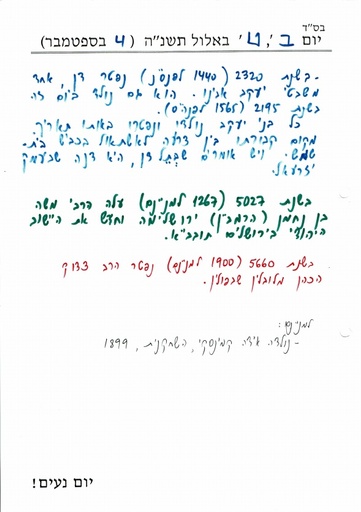 בס"ד
יום ב', ט' באלול תשנ"ה ( 4 בספטמבר)
-בשנת 2320 (1440 לפנס"נ) נפטר דן, אחד
משבטי יעקב אבינו. הוא גם נולד ביום זה
בשנת 2195 (1565 לפנה"ס).
כל בני יעקב נולדו ונפטרו באותו תאריך.
מקום קבורתו בין צרעה לאשתאול בכביש בית-
שמש. ויש אומרים שבתל דן, היא דנה שבעמק
יזרעאל.
בשנת 5027 (1267 למנינם) עלה הרבי משה
בן נחמן (הרמב"ן) ירושלימה וחדש את הישוב
היהודי בירושלים תובב"א.
בשנת 5660 (1900 למנינם) נפטר הרב צדוק
הכהן מלובלין שבפולין.
למנינם:
- נולדה אידה קמינסקי, השחקנית, 1899
יום נעים!